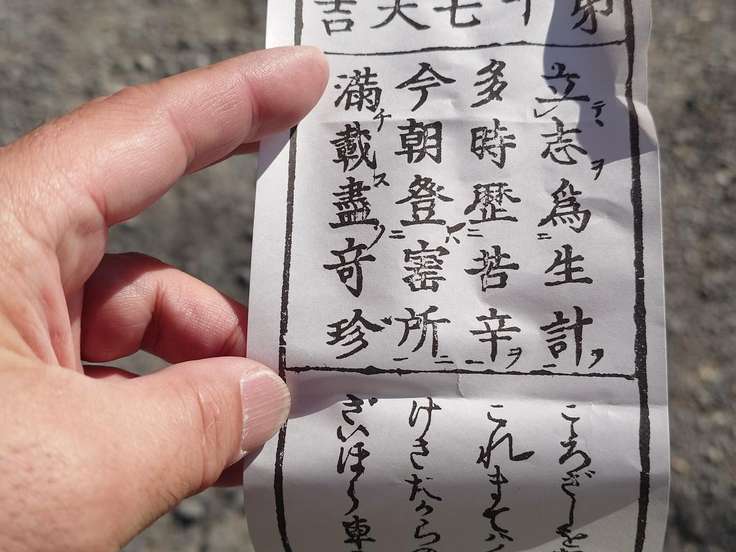 弟十七大吉
立志爲生計
多時歷苦辛
今朝登寳所
滿載盡竒珍
こゝろざしを
これまでハ
けさたからの
ざいほう車